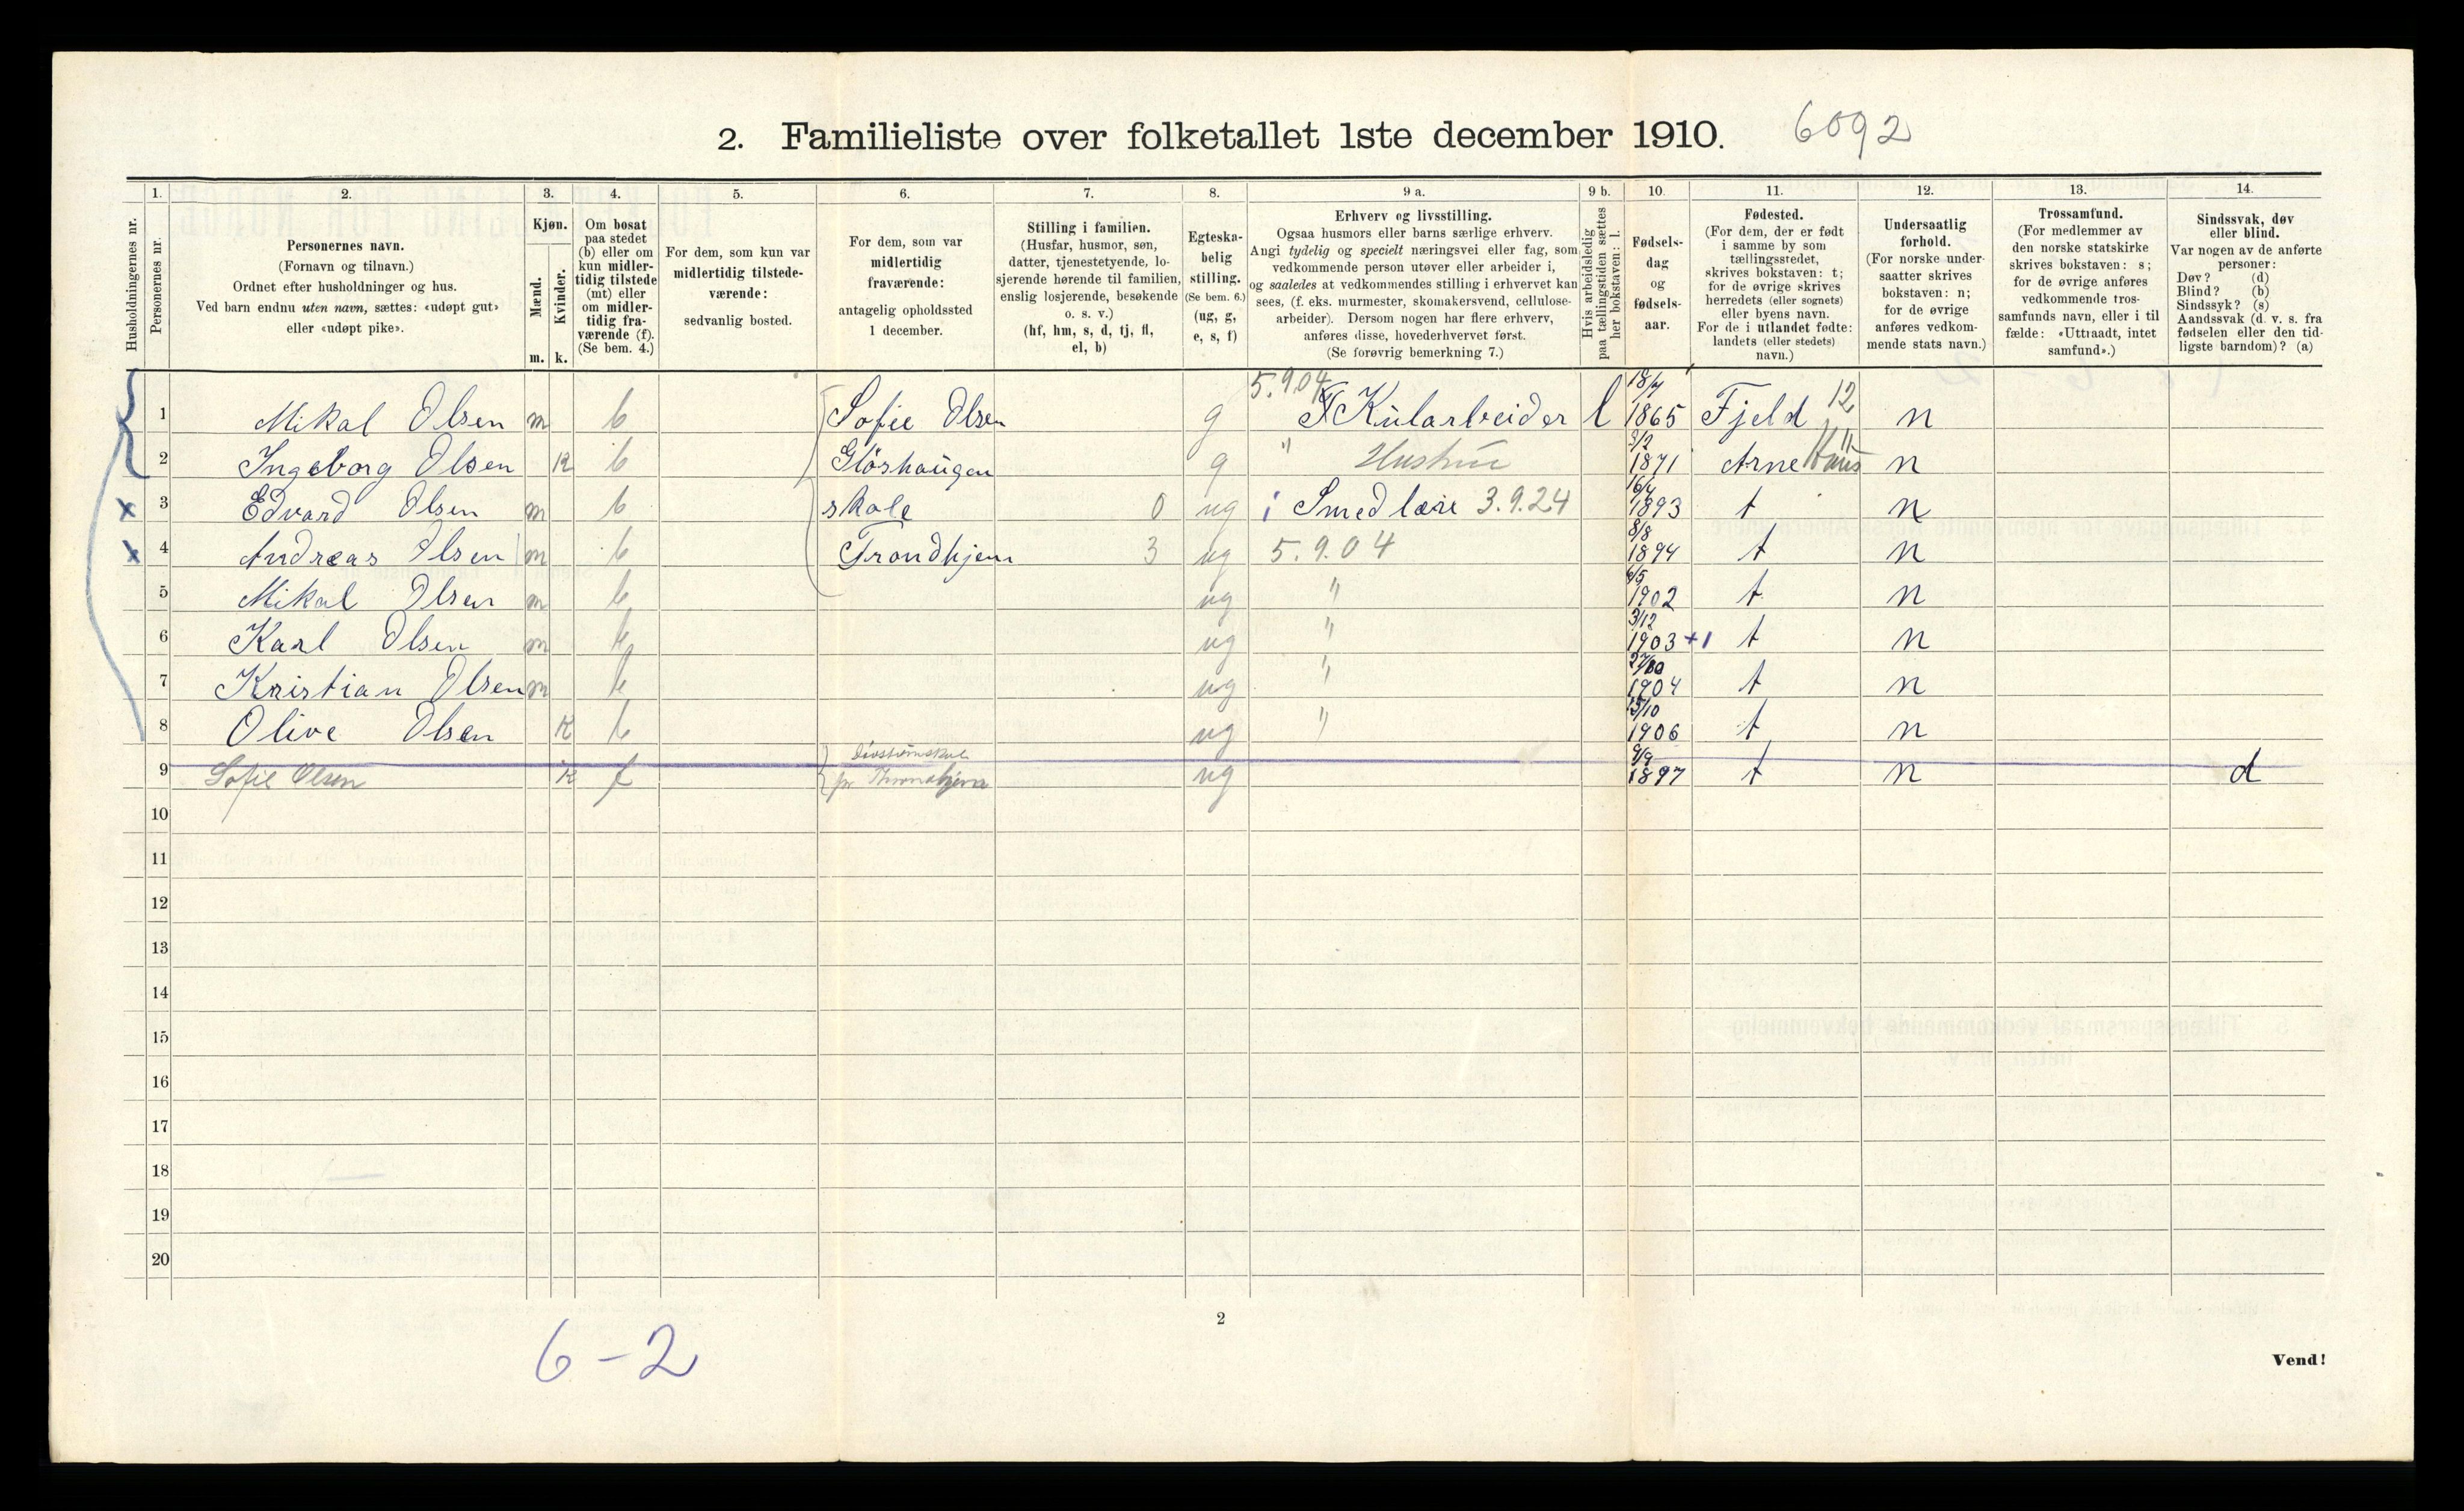 2. Familieliste over folketallet 1ste december 1910. 6092
1. 2. 3. 4. 5. 6. 7. 8. 9 a. 9 b. 10. 11. 12. 13. 14.
Husholdningernes nr.
Personernes nr.
Personernes navn.
(Fornavn og tilnavn.)
Ordnet efter husholdninger og hus.
Ved barn endnu uten navn, sættes: «udøpt gut»
eller «udøpt pike».
Kjøn.
Mænd.
Kvinder.
m. k.
Om bosat
paa stedet
(b) eller om
kun midler-
tidig tilstede
(mt) eller
om midler-
tidig fra-
værende (f).
(Se bem. 4.)
For dem, som kun var
midlertidig tilstede-
værende:
sedvanlig bosted.
For dem, som var
midlertidig
fraværende:
antagelig opholdssted
1 december.
Stilling i familien.
(Husfar, husmor, søn,
datter, tjenestetyende, lo-
sjerende hørende til familien,
enslig losjerende, besøkende
o. s. v.)
(hf, hm, s, d, tj, fl,
el, b)
Egteska-
belig
stilling.
(Se bem. 6.)
(ug, g,
e, s, f)
Erhverv og livsstilling.
Ogsaa husmors eller barns særlige erhverv.
Angi tydelig og specielt næringsvei eller fag, som
vedkommende person utøver eller arbeider i,
og saaledes at vedkommendes stilling i erhvervet kan
sees, (f. eks. murmester, skomakersvend, cellulose-
arbeider). Dersom nogen har flere erhverv,
anføres disse, hovederhvervet først.
(Se forøvrig bemerkning 7.)
Hvis arbeidsledig
paa tællingstiden sættes
her bokstaven: l.
Fødsels-
dag
og
fødsels-
aar.
Fødested.
(For dem, der er født
i samme by som
tællingsstedet,
skrives bokstaven: t;
for de øvrige skrives
herredets (eller sognets)
eller byens navn.
For de i utlandet fødte:
landets (eller stedets)
navn.)
Undersaatlig
forhold.
(For norske under-
saatter skrives
bokstaven: n;
for de øvrige
anføres vedkom-
mende stats navn.)
Trossamfund.
(For medlemmer av
den norske statskirke
skrives bokstaven: s;
for de øvrige anføres
vedkommende tros-
samfunds navn, eller i til
fælde: «Uttraadt, intet
samfund».)
Sindssvak, døv
eller blind.
Var nogen av de anførte
personer:
Døv? (d)
Blind? (b)
Sindssyk? (s)
Aandssvak (d. v. s. fra
fødselen eller den tid-
ligste barndom)? (a)
1 Mikal Olsen m b Sofie Olsen g 5.9.04 Kularbeider l 18/7 1865 Fjeld 12 n
2 Ingeborg Olsen k b Glöshaugen g " Hustru 3/12 1871 Arne Haus 11 n
3 Edvard Olsen m b skole 0 ug i Smedlære 3.9.24 16/4 1893 t n
4 Andreas Olsen m b Trondhjem 3 ug 5.9.04 8/8 1894 t n
5 Mikal Olsen m b ug " 6/5 1902 t n
6 Karl Olsen m b ug " 3/12 1903 +1 t n
7 Kristian Olsen m b ug " 1904 t n
8 Olive Olsen k b ug " 15/10 1906 t n
9 Sofie Olsen k f ug 9/9 1897 t n d
10
11
12
13
14
15
16
17
18
19
20
2
6-2
Vend!